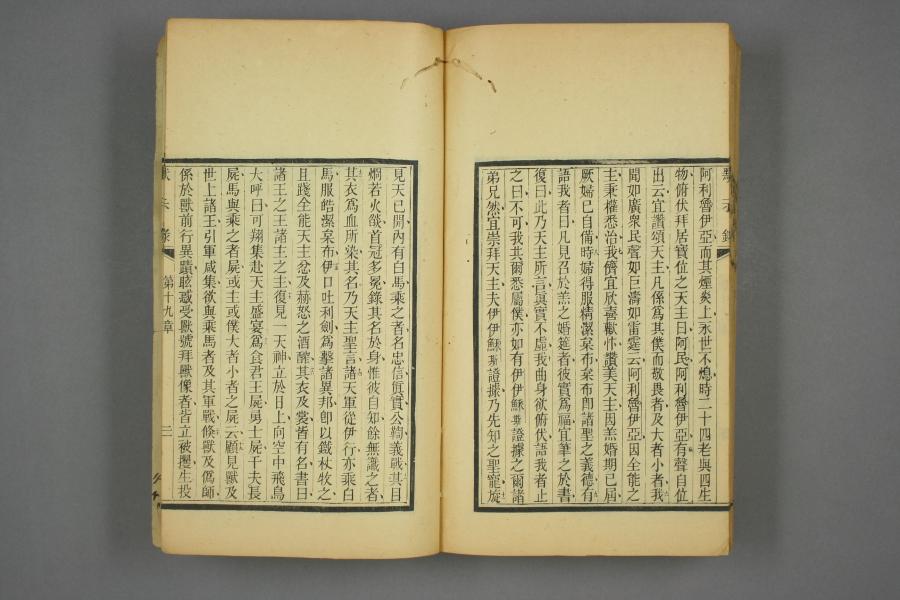 阿利魯伊亞而其煙炎上永世不熄時二十四老與四生
物俯伏拜居寶位之天主曰阿民阿利魯伊亞有聲自位
出云宜讚頌天主凡係為其僕而敬畏者及大者小者我
聞如廣衆民聲如巨濤如雷霆云阿利魯伊亞因全能之
主秉權悉治我儕宜欣喜歡忭讚美天主因羔婚期已屆
厥婦已自備時婦得服精潔枲布枲布卽諸聖之義德有
語我者曰凡見召於羔之婚筵者彼實為福宜筆之於書
復曰此乃天主所言眞實不虛我曲身欲俯伏語我者止
之曰不可我與爾悉屬僕亦如有伊伊穌斯證據之爾諸
弟兄然宜崇拜天主夫伊伊穌斯證據乃先知之聖寵旋
見天已開內有白馬乘之者名忠信篤實公鞫義戰其目
烱若火燄首冠多冕錄其名於身惟彼自知餘無識之者
其衣為血所染其名乃天主聖言諸天軍從伊行亦乘白
馬服皓潔枲布伊口吐利劍為擊諸異邦卽以鐵杖牧之
且踐全能天主忿及赫怒之酒醡其衣及裳皆有名書曰
諸王之王諸主之主復見一天神立於日上向空中飛鳥
大呼曰可翔集赴天主盛宴為食君王屍男士屍千夫長
屍馬與乘之者屍或主或僕大者小者之屍云顧見獸及
世上諸王引軍咸集欲與乘馬者及其軍戰倏獸及偽師
係於獸前行異蹟眩惑受獸號拜獸像者皆立被攫生投
第十九章